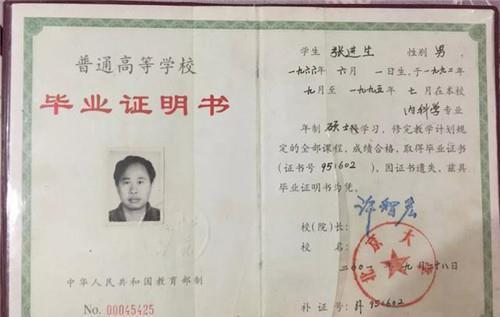 普通高等学校
毕业证明书
中华人民共和国教育部制
No. 00045425
学生 张进生 性别 男,
一九六六年 六月 一日生,于一九九二年
九月至 一九九五年 七月在本校
内科学 专业
年制 硕士 学习,修完教学计划规
定的全部课程,成绩合格,取得毕业证书
(证书号 951602),因证书遗失,兹具
毕业证明书为凭。
校(院)长:
校 名:
北京大学
二〇〇一 九月二十八日
补 证 号: 951602